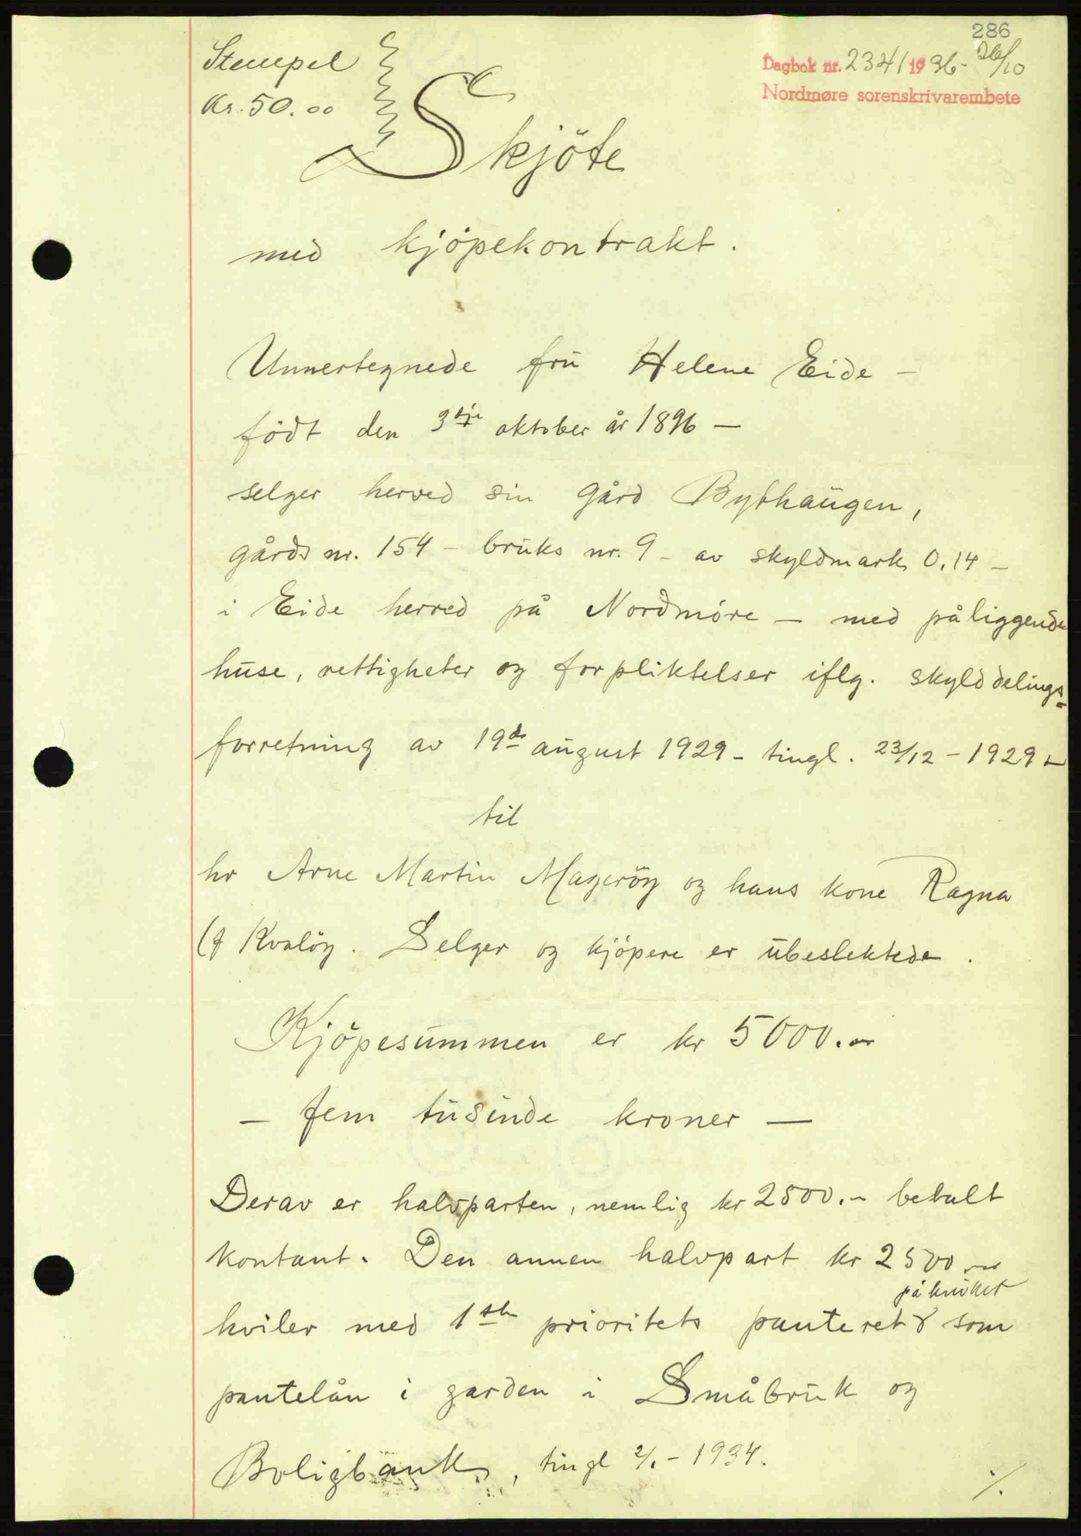 286
Stempel
Kr. 50.00
Dagbok nr. 2341 1936 - 26/10
Nordmøre sorenskrivarembete
Skjöte
med kjöpekontrakt.
Unnertegnede fru Helene Eide -
födt den 3dje oktober år 1896 —
selger herved sin gård Bythaugen,
gårds nr. 154 - bruks nr. 9 - av skyldmark 0,14 -
i Eide herred på Nordmöre - med påliggende
huse, rettigheter og forpliktelser iflg. skylddelings=
forretning av 19de august 1929 - tingl. 23/12 - 1929 -
til
hr Arne Martin Mageröy og hans kone Ragna
(f Kvalöy. Selger og kjöpere er ubeslektede.
Kjöpesummen er kr 5000.-
— fem tusinde kroner —
Derav er halvparten, nemlig kr 2500.- betalt
kontant. Den annen halvpart kr 2500.-
på bruket
hviler med 1ste prioritets panterett som
pantelån i garden i Småbruk og
Boligbank, tingl - 1934.
./.